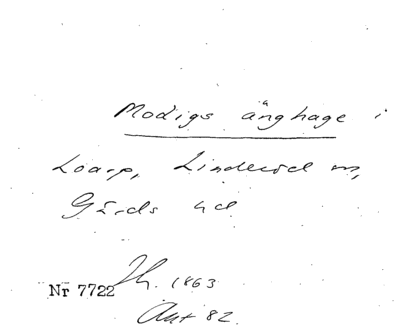 Modigs änghage i
Loarp, Linderöd sn,
Gärds hd
Nr 7722 Th. 1863
Ant 82.